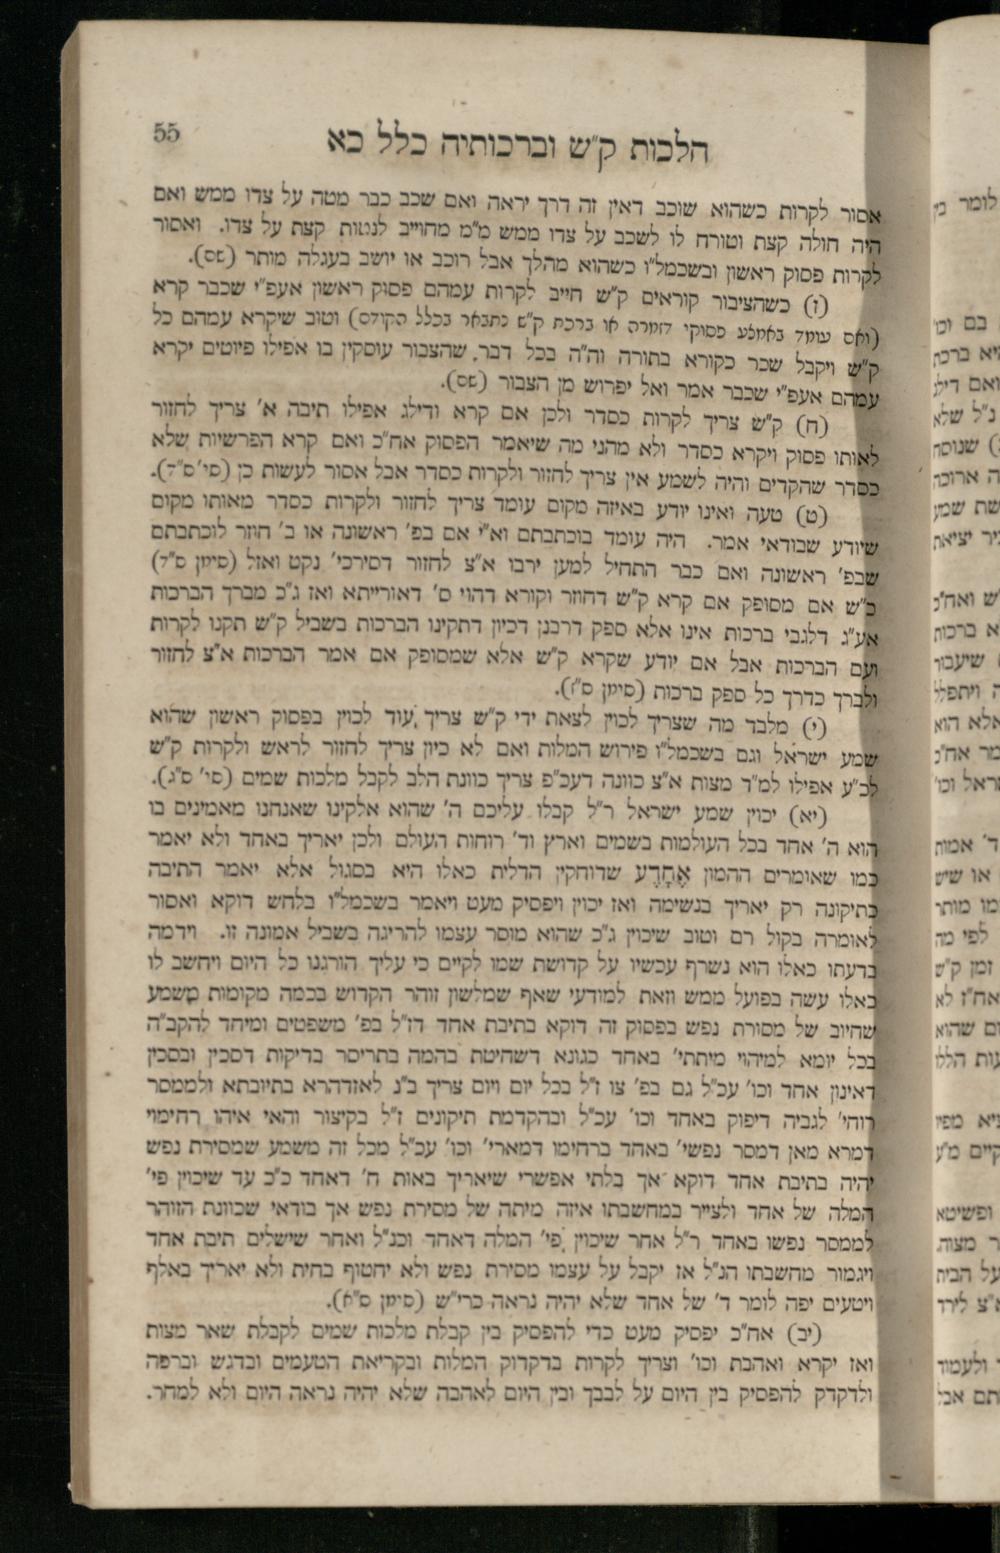 הלכות ק"ש וברכותיה כלל כא
55
אסור לקרות כשהוא שוכב דאין זה דרך יראה ואם שכב כבר מטה על צדו ממש ואם
היה חולה קצת וטורח לו לשכב על צדו ממש מ"מ מחוייב לנטות קצת על צדו. ואסור
לקרות פסוק ראשון ובשכמל"ו כשהוא מהלך אבל רוכב או יושב בעגלה מותר (שם).
(ז) כשהציבור קוראים ק"ש חייב לקרות עמהם פסוק ראשון אעפ"י שכבר קרא
(ואם עומד באמצע פסוקי דזמרה או ברכת ק"ש כתבאר בכלל הקודם) וטוב שיקרא עמהם כל
ק"ש ויקבל שכר כקורא בתורה וה"ה בכל דבר, שהצבור עוסקין בו אפילו פיוטים יקרא
עמהם אעפ"י שכבר אמר ואל יפרוש מן הצבור (שם).
(ח) ק"ש צריך לקרות כסדר ולכן אם קרא ודילג אפילו תיבה א' צריך לחזור
לאותו פסוק ויקרא כסדר ולא מהני מה שיאמר הפסוק אח"כ ואם קרא הפרשיות שלא
כסדר שהקדים והיה לשמע אין צריך לחזור ולקרות כסדר אבל אסור לעשות כן (סי' ס"ד).
(ט) טעה ואינו יודע באיזה מקום עומד צריך לחזור ולקרות כסדר מאותו מקום
שיודע שבודאי אמר. היה עומד בוכתבתם וא"י אם בפ' ראשונה או ב' חוזר לוכתבתם
שבפ' ראשונה ואם כבר התחיל למען ירבו א"צ לחזור דסירכי' נקט ואזל (סימן ס"ד)
כ"ש אם מסופק אם קרא ק"ש דחוזר וקורא דהוי ס' דאורייתא ואז ג"כ מברך הברכות
אע"ג דלגבי ברכות אינו אלא ספק דרבנן דכיון דתקינו הברכות בשביל ק"ש תקנו לקרות
ועם הברכות אבל אם יודע שקרא ק"ש אלא שמסופק אם אמר הברכות א"צ לחזור
ולברך כדרך כל ספק ברכות (סימן ס"ז).
(י) מלבד מה שצריך לכוין לצאת ידי ק"ש צריך עוד לכוין בפסוק ראשון שהוא
שמע ישראל וגם בשכמל"ו פירוש המלות ואם לא כיון צריך לחזור לראש ולקרות ק"ש
לכ"ע אפילו למ"ד מצות א"צ כוונה דעכ"פ צריך כוונת הלב לקבל מלכות שמים (סי' ס"ג).
(יא) יכוין שמע ישראל ר"ל קבלו עליכם ה' שהוא אלקינו שאנחנו מאמינים בו
הוא ה' אחד בכל העולמות בשמים וארץ וד' רוחות העולם ולכן יאריך באחד ולא יאמר
כמו שאומרים ההמון אֶחָדֶע שדוחקין הדלית כאלו היא בסגול אלא יאמר התיבה
כתיקונה רק יאריך בנשימה ואז יכוין ויפסיק מעט ויאמר בשכמל"ו בלחש דוקא ואסור
לאומרה בקול רם וטוב שיכוין ג"כ שהוא מוסר עצמו להריגה בשביל אמונה זו. וידמה
בדעתו כאלו הוא נשרף עכשיו על קדושת שמו לקיים כי עליך הורגנו כל היום ויחשב לו
כאלו עשה בפועל ממש וזאת למודעי שאף שמלשון זוהר הקדוש בכמה מקומות משמע
שחיוב של מסורת נפש בפסוק זה דוקא בתיבת אחד דז"ל בפ' משפטים ומיחד להקב"ה
בכל יומא למיהוי מיתתי' באחד כגונא דשחיטת בהמה בתריסר בדיקות דסכין ובסכין
דאינון אחד וכו' עכ"ל גם בפ' צו ז"ל בכל יום ויום צריך ב"נ לאזדהרא בתיובתא ולממסר
רוחי' לגביה דיפוק באחד וכו' עכ"ל ובהקדמת תיקונים ז"ל בקיצור והאי איהו רחימוי
דמרא מאן דמסר נפשי' באחד ברחימו דמארי' וכו' עכ"ל מכל זה משמע שמסירת נפש
יהיה בתיבת אחד דוקא אך בלתי אפשרי שיאריך באות ח' דאחד כ"כ עד שיכוין פי'
המלה של אחד ולצייר במחשבתו איזה מיתה של מסירת נפש אך בודאי שכוונת הזוהר
לממסר נפשו באחד ר"ל אחר שיכוין פי' המלה דאחד וכנ"ל ואחר שישלים תיבת אחד
ויגמור מחשבתו הנ"ל אז יקבל על עצמו מסירת נפש ולא יחטוף בחית ולא יאריך באלף
ויטעים יפה לומר ד' של אחד שלא יהיה נראה כרי"ש (סימן ס"א).
(יב) אח"כ יפסיק מעט כדי להפסיק בין קבלת מלכות שמים לקבלת שאר מצות
ואז יקרא ואהבת וכו' וצריך לקרות בדקדוק המלות ובקריאת הטעמים ובדגש וברפה
ולדקדק להפסיק בין היום על לבבך ובין היום לאהבה שלא יהיה נראה היום ולא למחר.